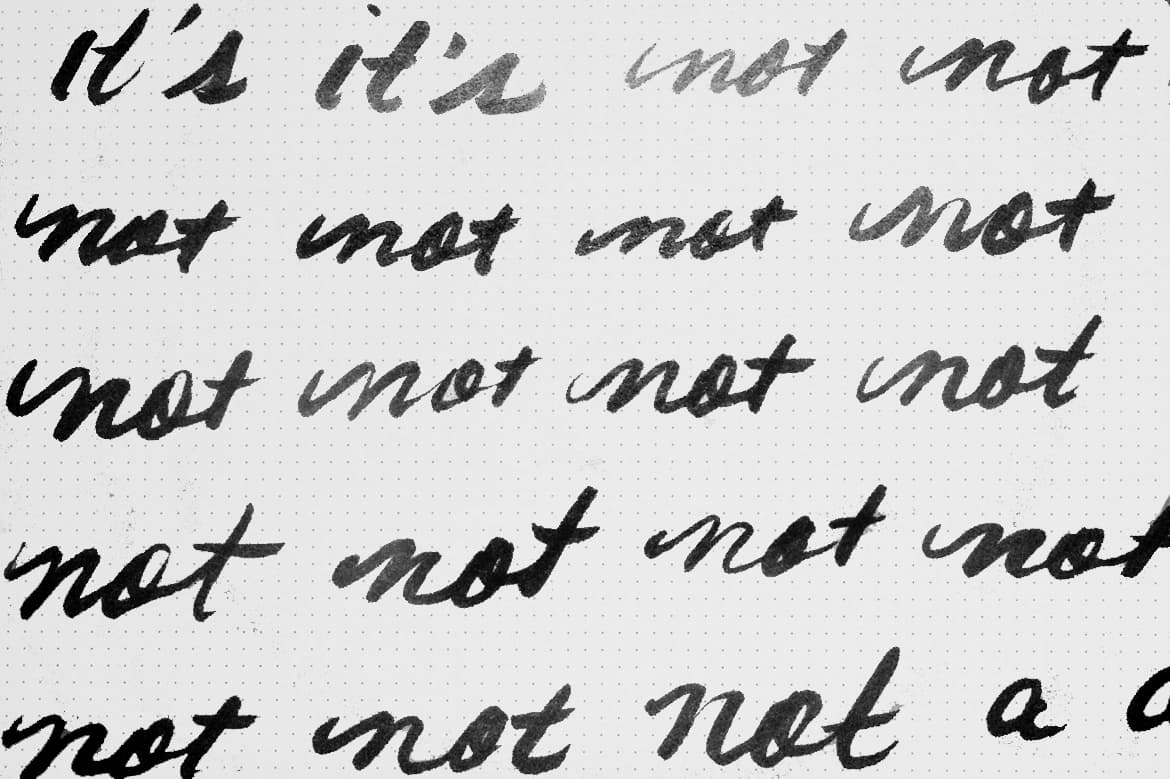 it's it's not not
not not not not
not not not not
not not not not
not not not a